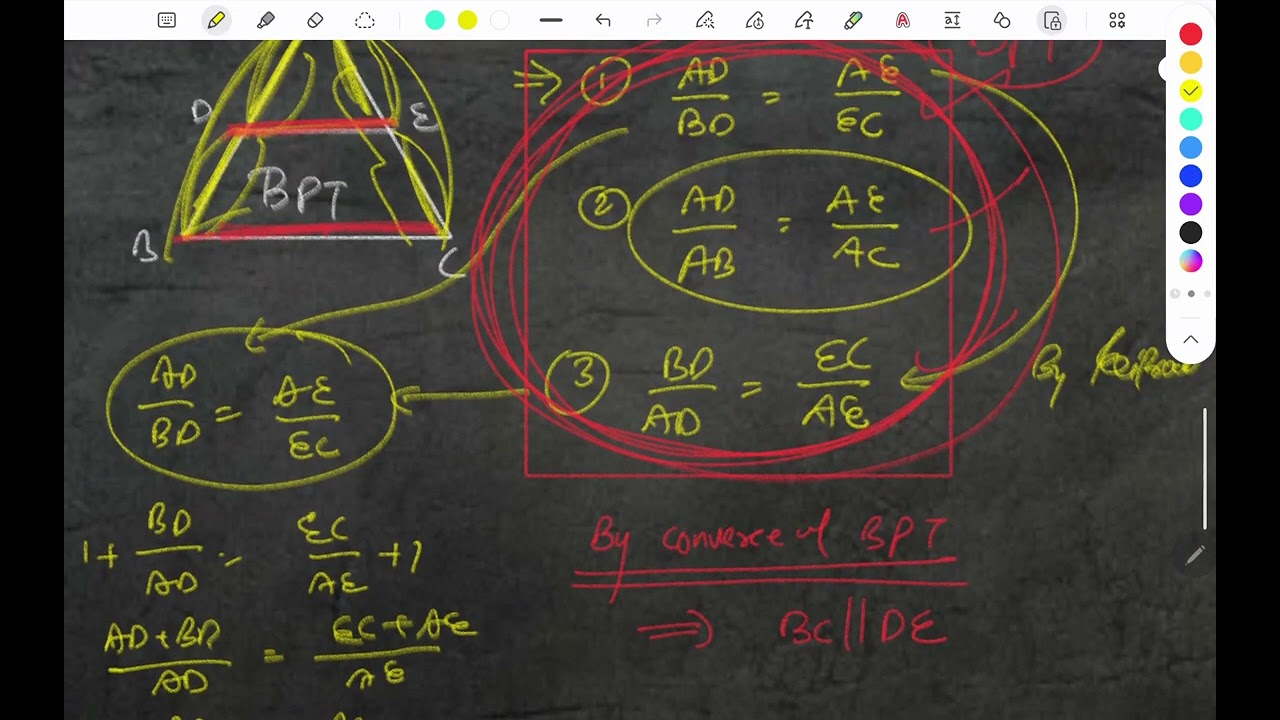 D E
BPT
B C
⇒ ① AD/BD = AE/EC
② AD/AB = AE/AC
③ BD/AD = EC/AE
By
AD/BD = AE/EC
1 + BD/AD = EC/AE + 1
AD + BD/AD = EC + AE/AE
By converse of BPT
⇒ BC || DE